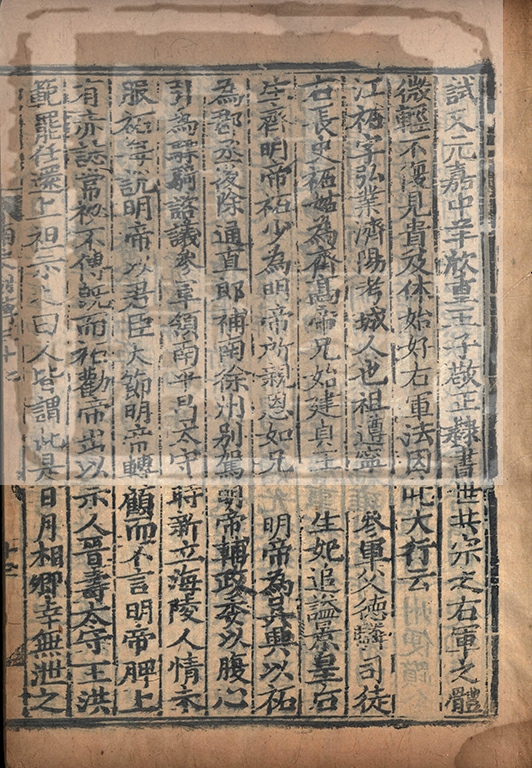 試又元嘉中羊欣重王子敬正隸書世共宗之右軍之體
微輕不復見貴及休始好右軍法因此大行云
江祏字弘業濟陽考城人也祖遵寧參軍父德驎司徒
右長史祏姑為齊高帝兄始建貞王生妃追謚景皇后
生齊明帝祏少為明帝所親恩如兄明帝為吳興以祏
為郡丞後除通直郎補南徐州別駕明帝輔政委以腹心
引為驃騎諮議參軍領南平昌太守時新立海陵人情未
服祏每說明帝以君臣大節明帝轉顧而不言明帝胛上
有赤誌常祕不傳既而祏勸帝出以示人晉壽太守王洪
範罷任還上袒示之曰人皆謂此是日月相卿幸無泄之